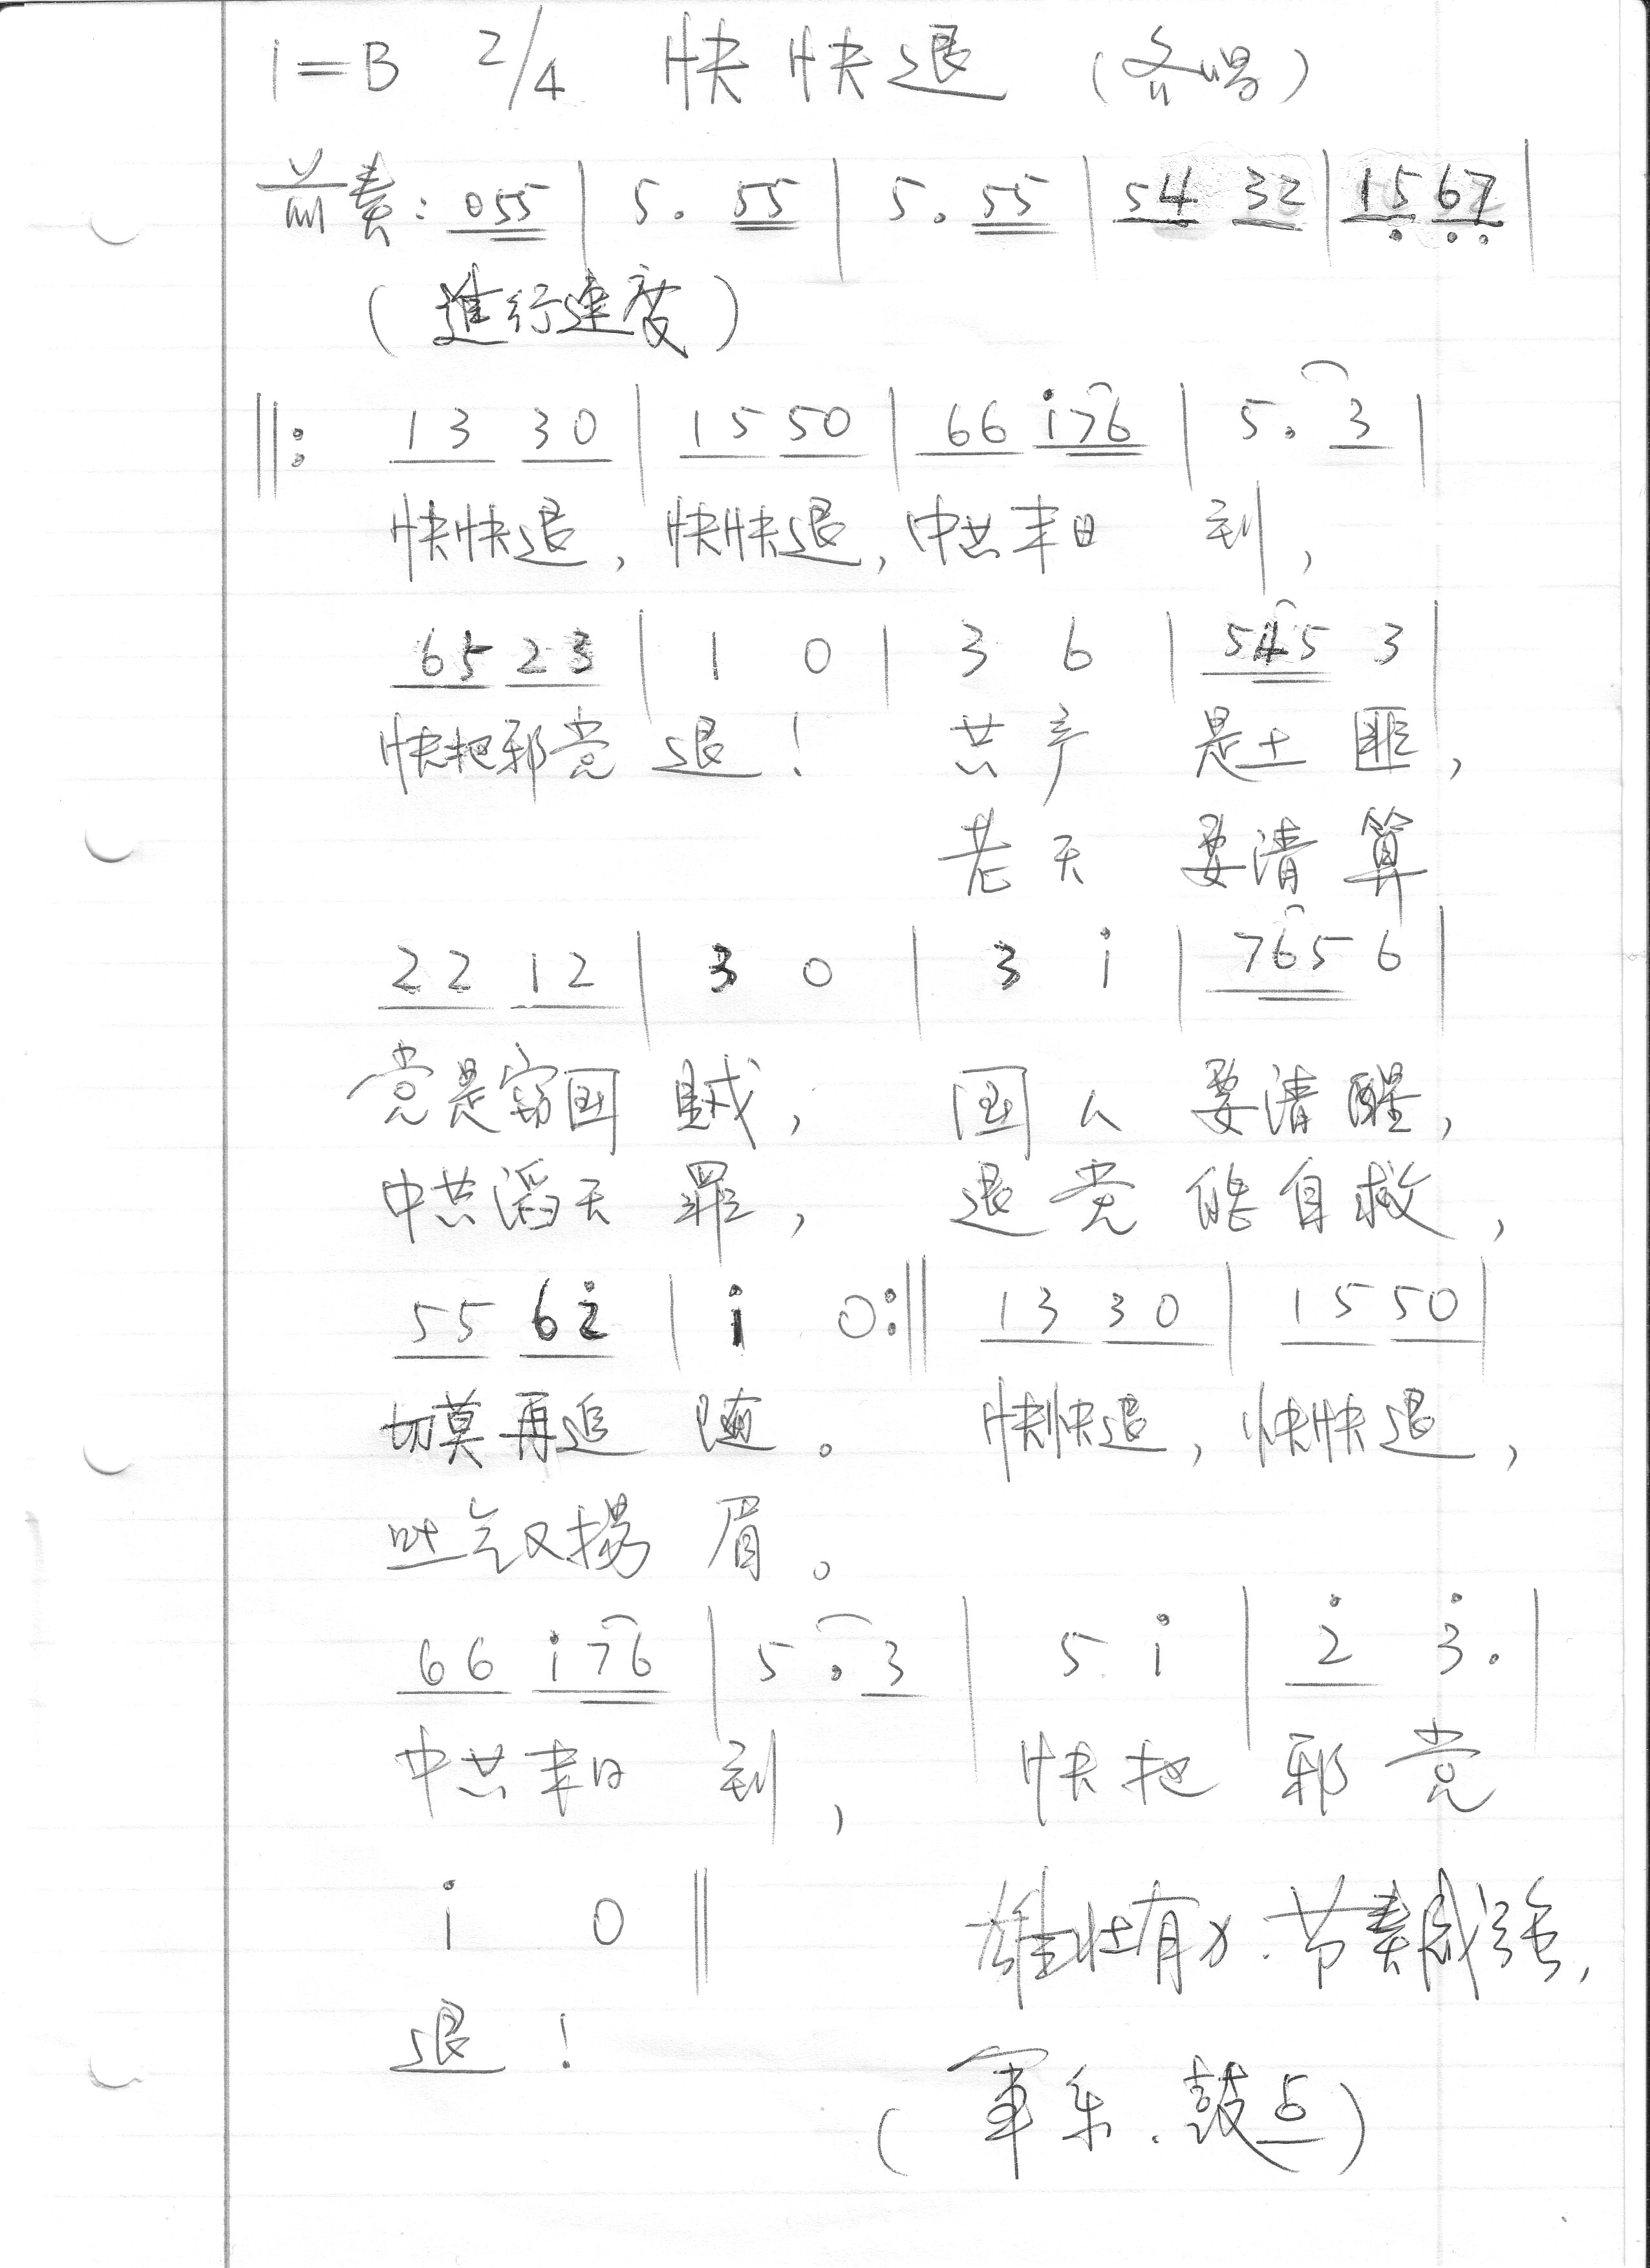 1=B 2/4 快快退 (齐唱)
前奏: 055 | 5. 55 | 5. 55 | 54 32 | 15 67 |
(進行速度)
‖: 13 30 | 15 50 | 66 i76 | 5. 3 |
快快退, 快快退, 中共末日 到,
65 23 | 1 0 | 3 6 | 545 3 |
快把邪党 退! 共产 是土匪,
老天 要清算
22 12 | 3 0 | 3 i | 765 6 |
党是窃国 贼, 国人 要清醒,
中共滔天 罪, 退党 能自救,
55 6 2̇ | i 0 :‖ 13 30 | 15 50 |
切莫再追 随。 快快退, 快快退,
吐气又揚 眉。
66 i76 | 5. 3 | 5 i | 2̇ 3̇. |
中共末日 到, 快把 邪党
i 0 ‖ 雄壮有力.节奏感强,
退!
(军乐.鼓点)